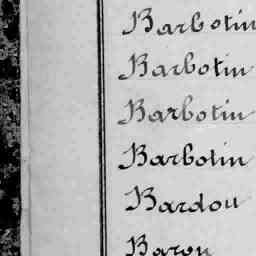 Barbotin
Barbotin
Barbotin
Barbotin
Bardou
Baron